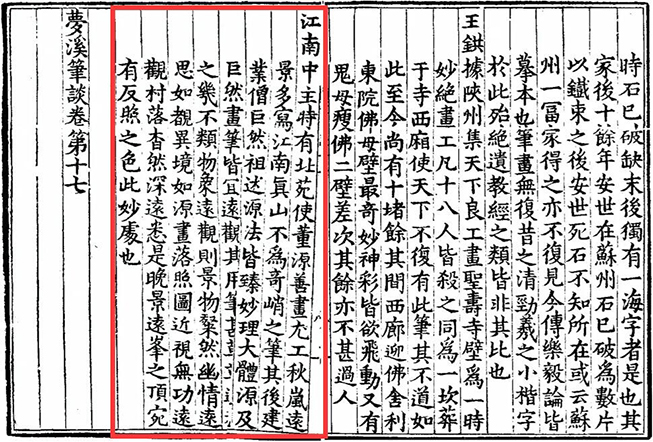 時石已破缺末後獨有一海字者是也其
家後十餘年安世在蘇州石已破為數片
以鐵束之後安世死石不知所在或云蘇
州一富家得之亦不復見今傳樂毅論皆
摹本也筆畫無復昔之清勁羲之小楷字
於此殆絕遺教經之類皆非其比也
王鉷據陜州集天下良工畫聖壽寺壁為一時
妙絕畫工凡十八人皆殺之同為一坎葬
于寺西廂使天下不復有此筆其不道如
此至今尚有十堵餘其間西廊迎佛舍利
東院佛母壁最奇妙神彩皆欲飛動又有
鬼母瘦佛二壁差次其餘亦不甚過人
江南中主時有北苑使董源善畫尤工秋嵐遠
景多寫江南真山不為奇峭之筆其後建
業僧巨然祖述源法皆臻妙理大體源及
巨然畫筆皆宜遠觀其用筆甚
之幾不類物象遠觀則景物粲然幽情遠
思如觀異境如源畫落照圖近視無功遠
觀村落杳然深遠悉是晚景遠峯之頂宛
有反照之色此妙處也
夢溪筆談卷第十七